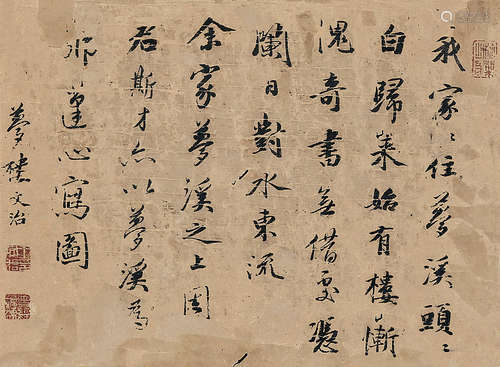 我家〻住夢溪頭〻
白歸來始有樓慚
愧奇書無借處憑
闌日對水東流
余家夢溪之上周
君斯才亦以夢溪為
蓬心寫圖
夢樓文治